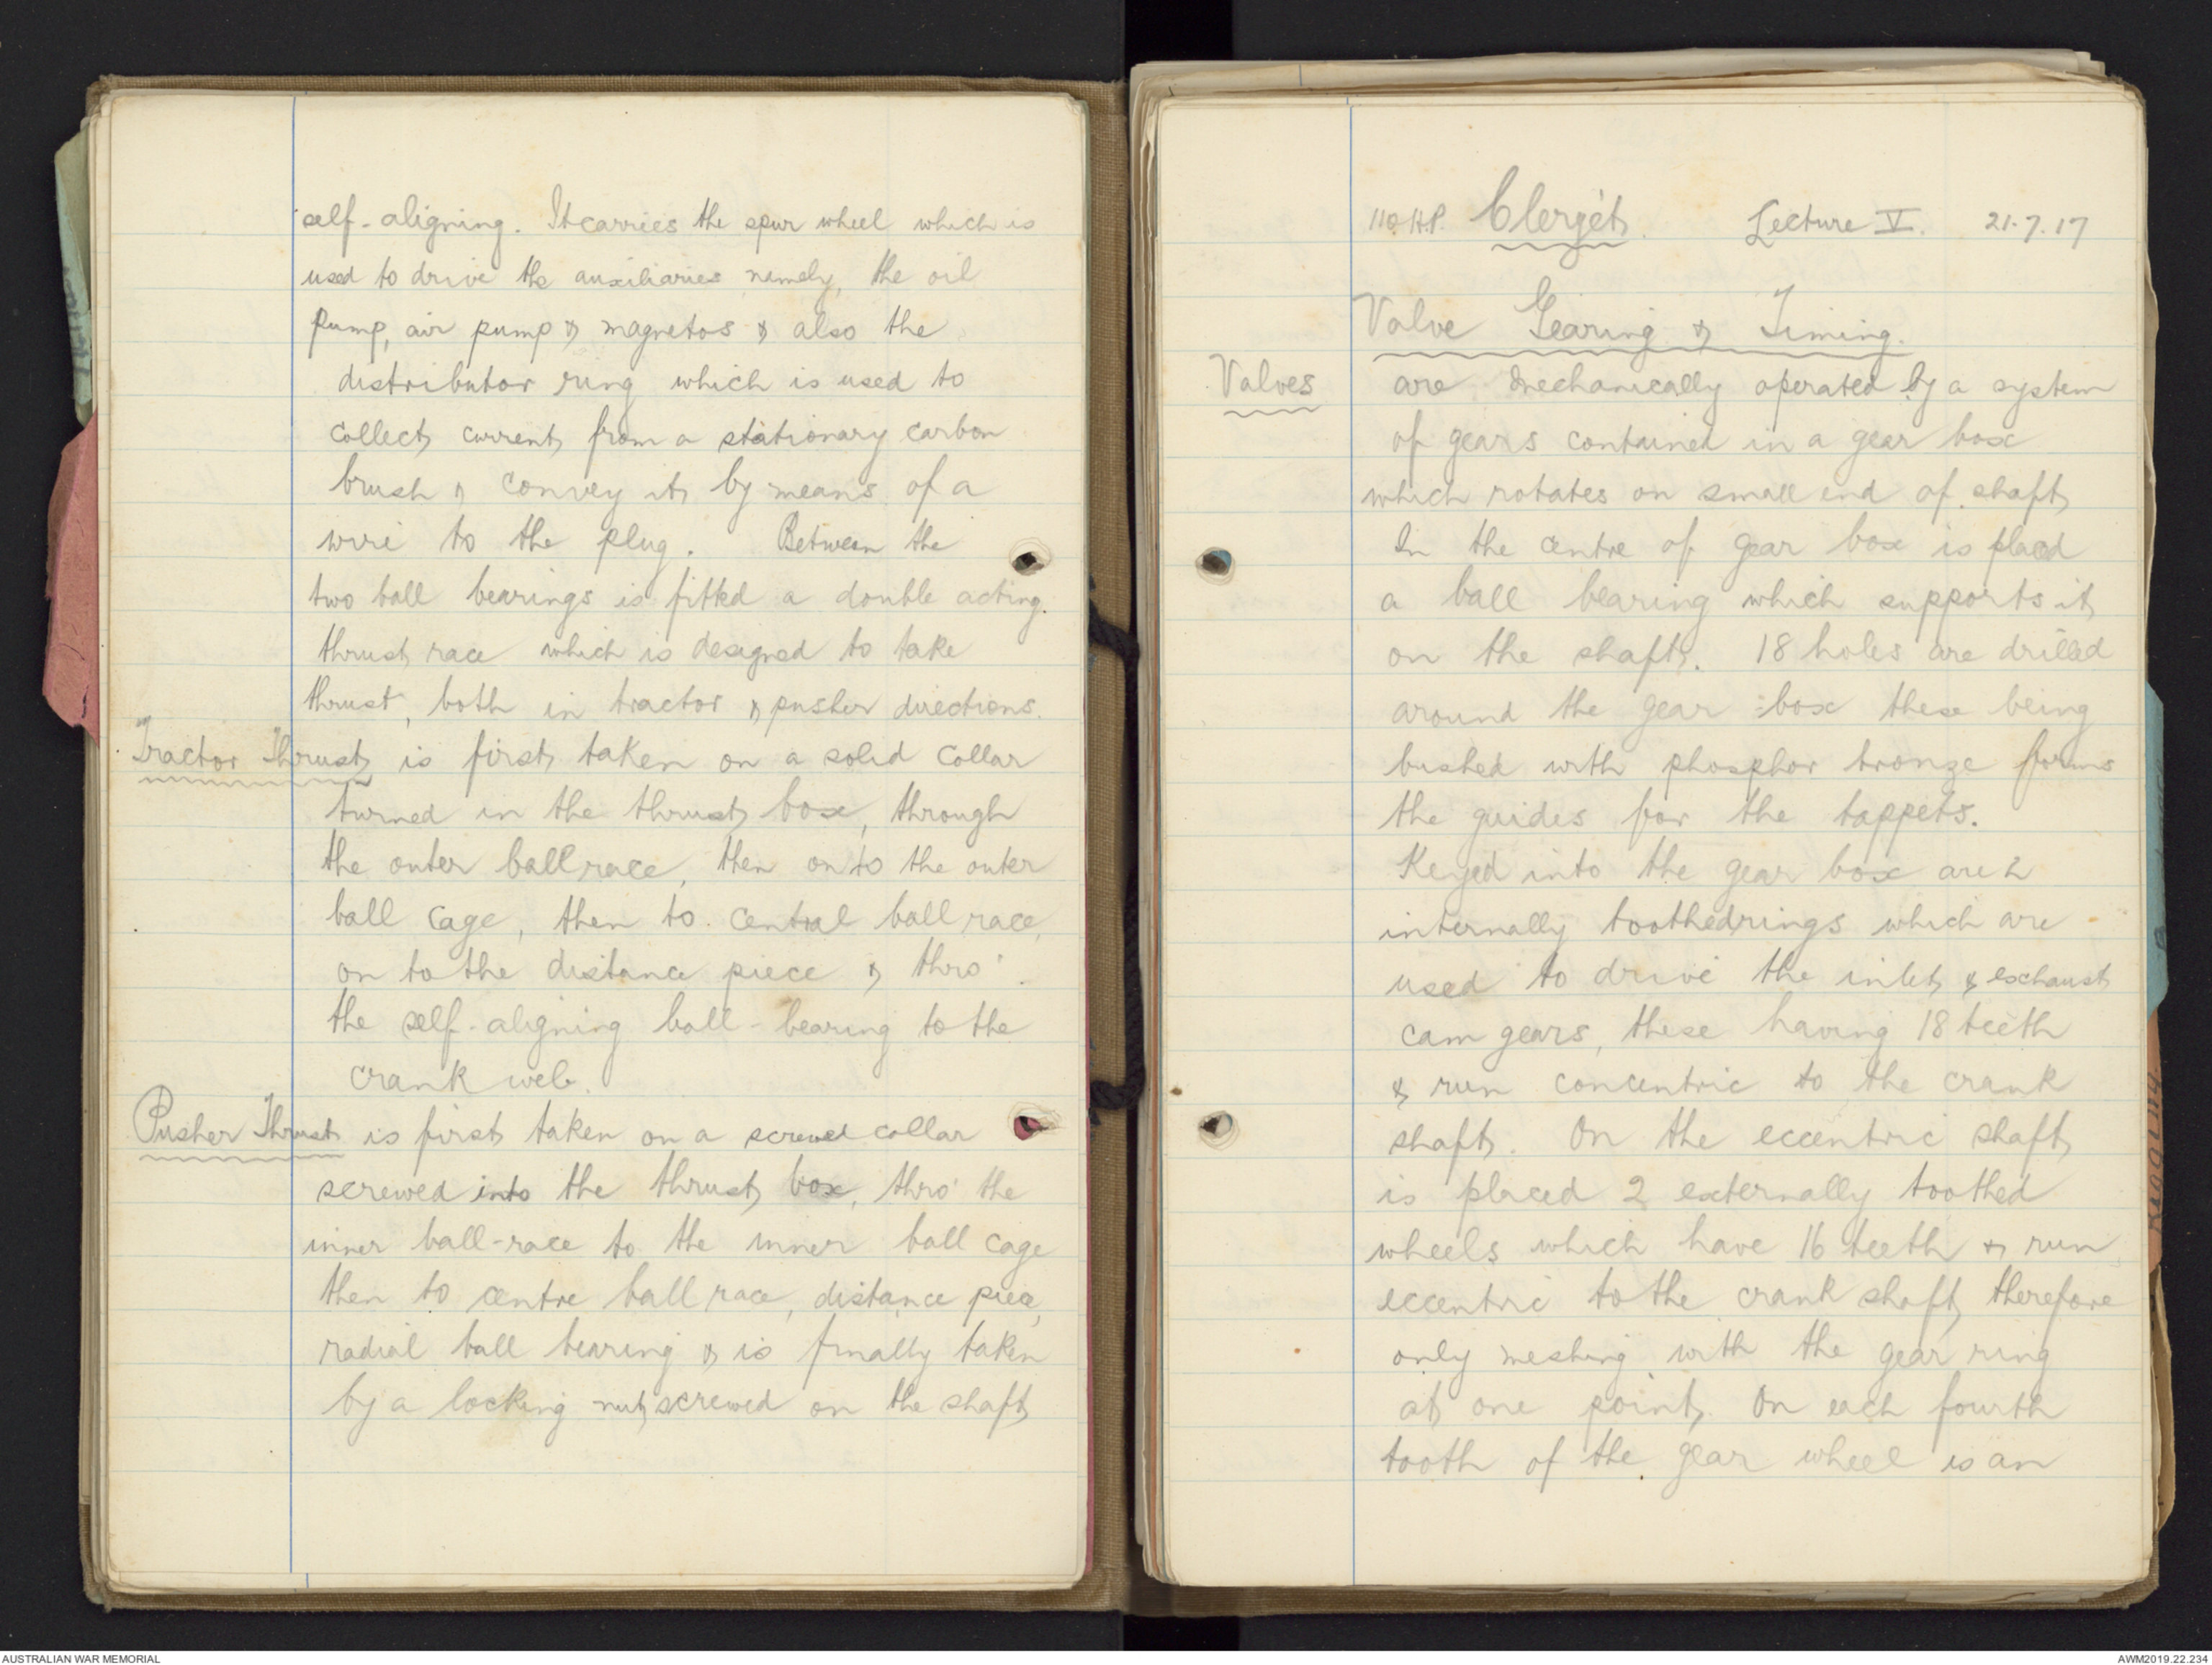 self-aligning. It carries the spur wheel which is
used to drive the auxiliaries namely, the oil
pump, air pump & magnetos & also the
distributor ring which is used to
collect current from a stationary carbon
brush & convey it by means of a
wire to the plug. Between the
two ball bearings is fitted a double acting
thrust race which is designed to take
thrust, both in tractor & pusher directions.
Tractor Thrust is first taken on a solid collar
turned in the thrust box, through
the outer ball race, then on to the outer
ball cage, then to central ball race,
on to the distance piece & thro'
the self-aligning ball-bearing to the
crank web.
Pusher Thrust is first taken on a screwed collar
screwed into the thrust box, thro' the
inner ball-race to the inner ball cage
then to centre ball race, distance piece,
radial ball bearing & is finally taken
by a locking nut screwed on the shaft
110 H.P. Clerget. Lecture V. 21.7.17
Valve Gearing & Timing.
Valves are mechanically operated by a system
of gears contained in a gear box
which rotates on small end of shaft
In the centre of gear box is placed
a ball bearing which supports it
on the shaft. 18 holes are drilled
around the gear box these being
bushed with phosphor bronze forms
the guides for the tappets.
Keyed into the gear box are 2
internally toothed rings which are
used to drive the inlet & exhaust
cam gears, these having 18 teeth
& run concentric to the crank
shaft. On the eccentric shaft
is placed 2 externally toothed
wheels which have 16 teeth & run
eccentric to the crank shaft, therefore
only meshing with the gear ring
at one point. On each fourth
tooth of the gear wheel is an
AUSTRALIAN WAR MEMORIAL
AWM2019.22.234